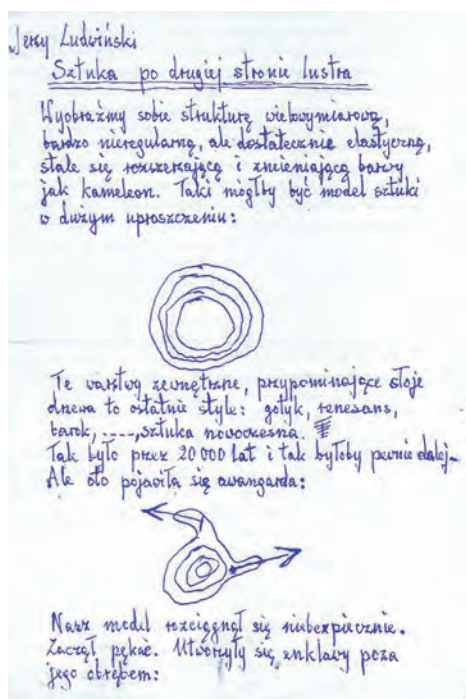 Jerzy Ludwiński
Sztuka po drugiej stronie lustra
Wyobraźmy sobie strukturę wielowymiarową,
bardzo nieregularną, ale dostatecznie elastyczną,
stale się rozszerzającą i zmieniającą barwy
jak kameleon. Taki mógłby być model sztuki
w dużym uproszczeniu:
Te warstwy zewnętrzne, przypominające słoje
drzewa to ostatnie style: gotyk, renesans,
barok, ...., sztuka nowoczesna.
Tak było przez 20 000 lat i tak byłoby pewnie dalej.
Ale oto pojawiła się awangarda:
Nasz model rozciągnął się niebezpiecznie.
Zaczął pękać. Utworzyły się enklawy poza
jego obrębem: